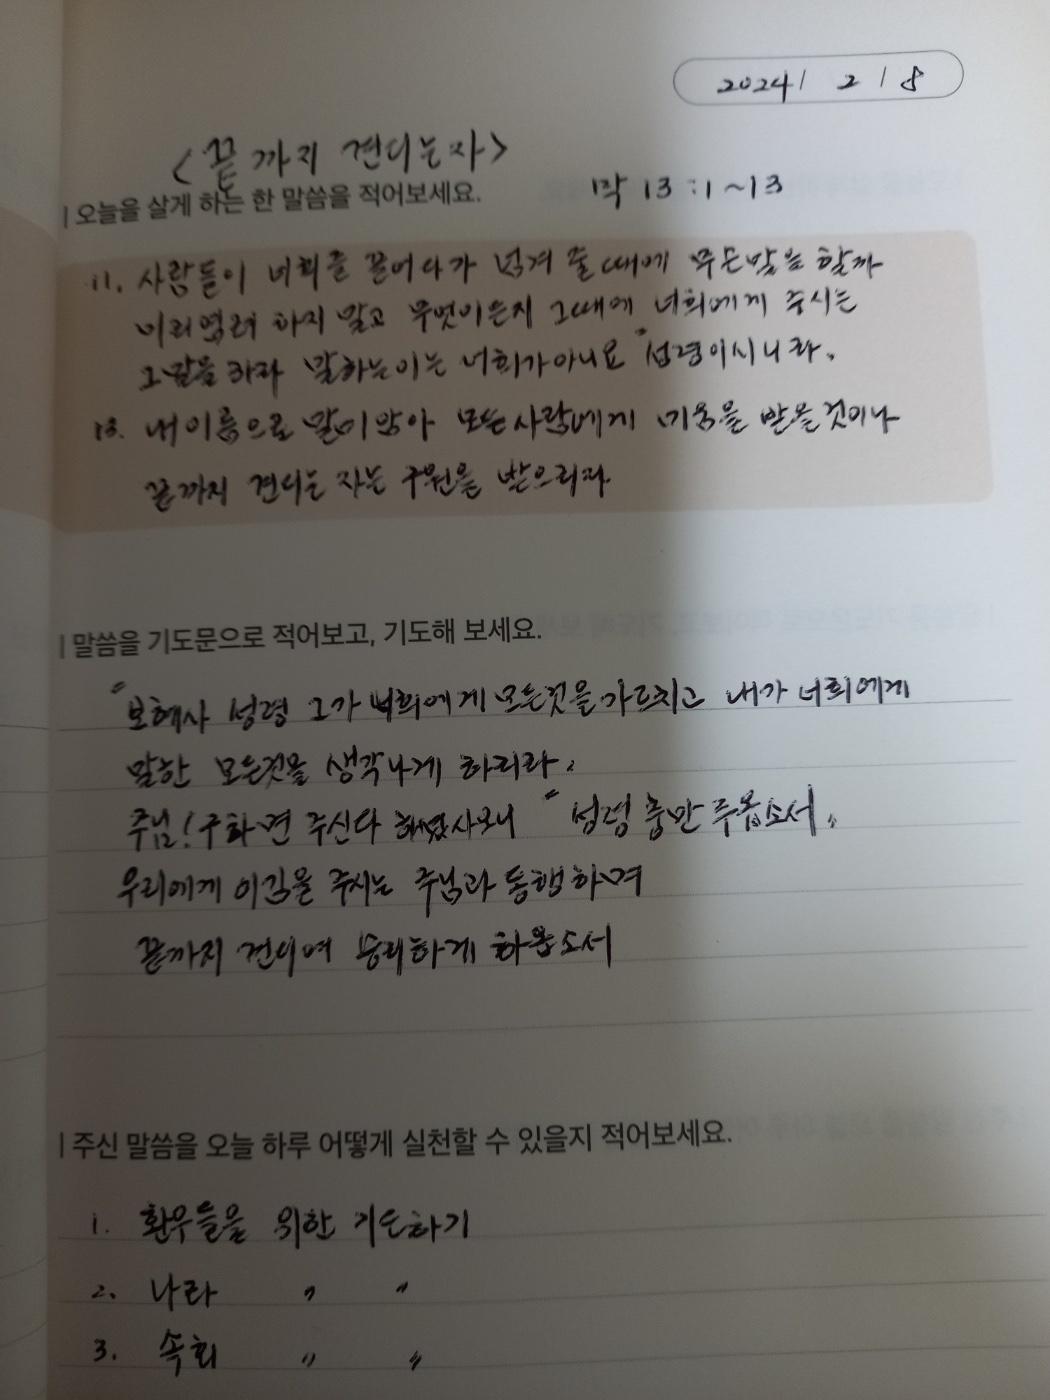 2024 / 2 / 8
<끝까지 견디는자>
| 오늘을 살게 하는 한 말씀을 적어보세요.
막 13:1~13
11. 사람들이 너희를 끌어다가 넘겨 줄 때에 무슨말을 할까
미리염려 하지 말고 무엇이든지 그때에 너희에게 주시는
그말을 하라 말하는이는 너희가아니요 "성령이시니라.
13. 내 이름으로 말미암아 모든사람에게 미움을 받을것이나
끝까지 견디는 자는 구원을 받으리라
| 말씀을 기도문으로 적어보고, 기도해 보세요.
"보혜사 성령 그가 너희에게 모든것을 가르치고 내가 너희에게
말한 모든것을 생각나게 하리라.
주님! 구하면 주신다 하였사오니 "성령 충만 주옵소서"
우리에게 이김을 주시는 주님과 동행하며
끝까지 견디여 승리하게 하옵소서
| 주신 말씀을 오늘 하루 어떻게 실천할 수 있을지 적어보세요.
1. 환우들을 위한 기도하기
2. 나라 〃 〃
3. 속회 〃 〃